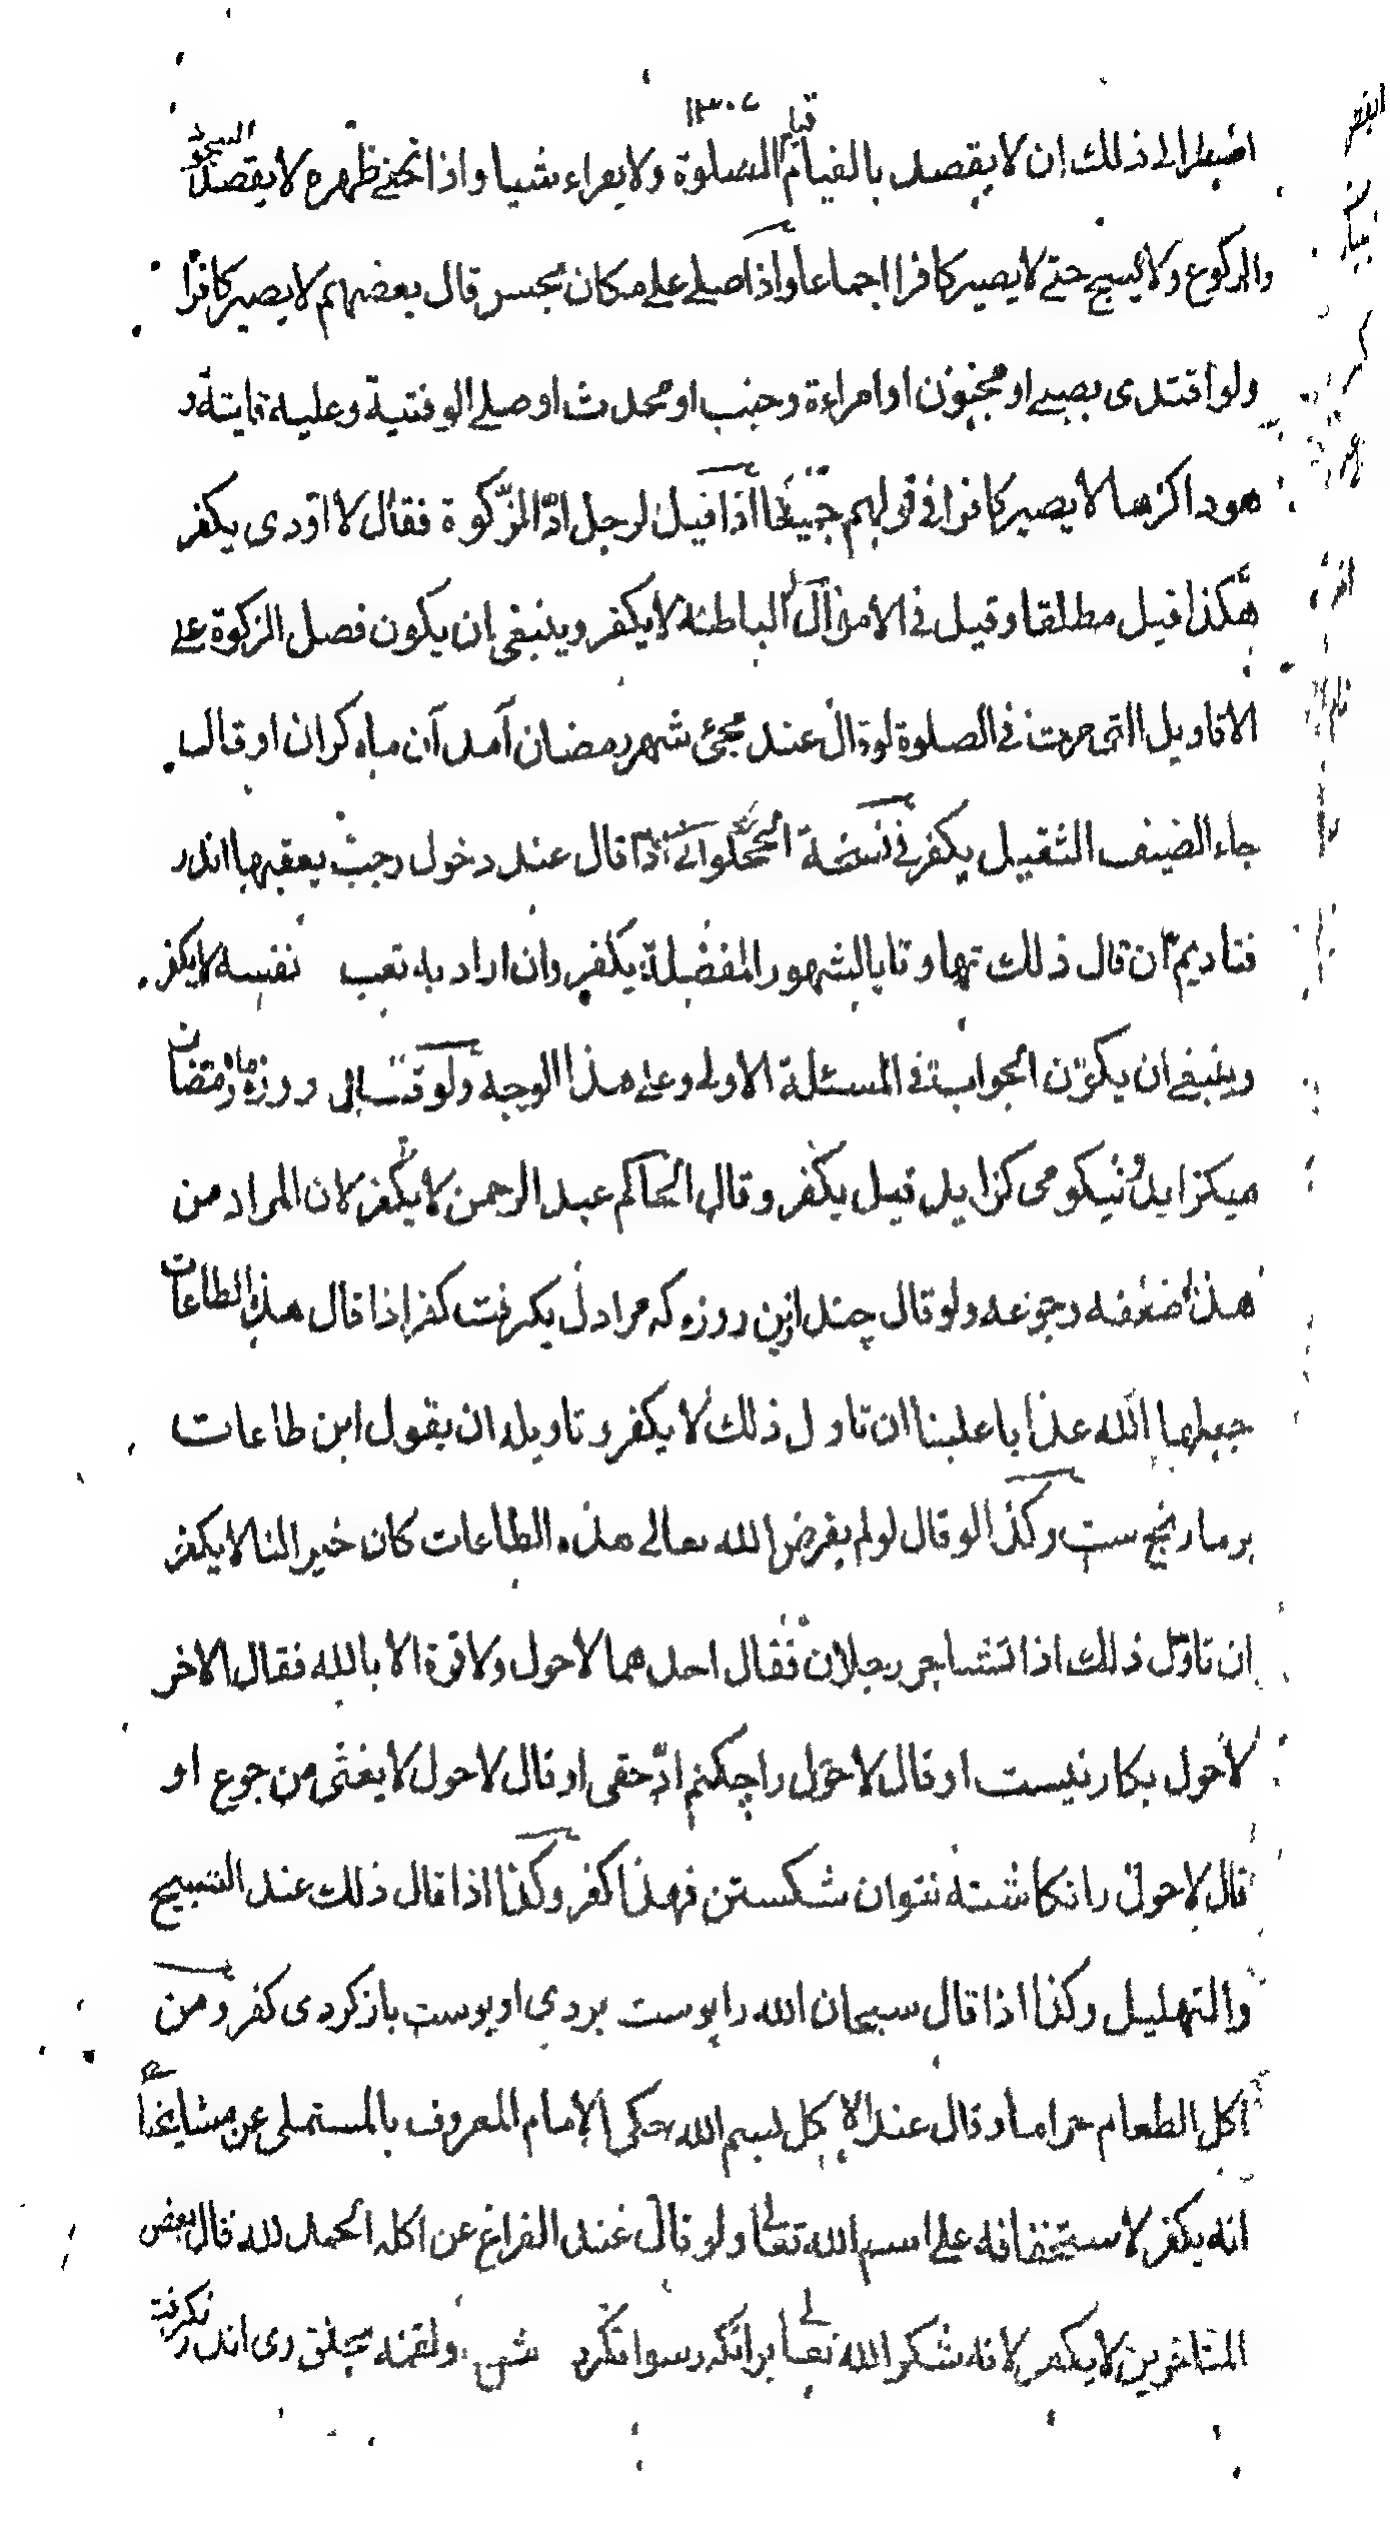 ١٣٠٧
اضطر الى ذلك ان لا يقصد بالقيام قيام الصلوة ولا يقراء شيا واذا انحنى ظهره لا يقصد السجود
والركوع ولا يسبح حتى لا يصير كافرا اجماعا واذا صلى على مكان نجس قال بعضهم لا يصير كافرا
ولو اقتدى بصبى او مجنون او امراءة وجنب او محدث او صلى الوقتية وعليه فايتة و
هو ذاكرها لا يصير كافرا فى قولهم جميعا اذا قيل لرجل ادّ الزكوة فقال لا اؤدى يكفر
هكذا قيل مطلقا وقيل فى الاموال الباطنة لا يكفر وينبغى ان يكون فصل الزكوة على
الاقاويل التى مرت فى الصلوة لو قال عند مجئ شهر رمضان آمد آن ماه كران او قال
جاء الضيف الثقيل يكفر فى نسخة الحلوانى اذا قال عند دخول رجب بعقبها اندر
فتاديم ان قال ذلك تهاونا بالشهور المفضلة يكفر وان اراد به تعب نفسه لا يكفر
وينبغى ان يكون الجواب فى المسئلة الاولى وعلى هذا الوجه ولو قال روزه ماه رمضان
هذا ضعفه وجوعه ولو قال چند ازين روزه كه مرا دل بكرفت كفر اذا قال هذه الطاعات
جعلها الله عذابا علينا ان تاول ذلك لا يكفر وتاويله ان يقول اين طاعات
بر ما رنج ست وكذا لو قال لو لم يفرض الله تعالى هذه الطاعات كان خيرا لنا لا يكفر
ان تاوّل ذلك اذا تشاجر رجلان فقال احدهما لا حول ولا قوة الا بالله فقال الاخر
لا حول بكار نيست او قال لا حول را چكنم ادّ حقى او قال لا حول لا يغنى من جوع او
قال لا حول را نكاشته نتوان شكستن فهذا كفر وكذا اذا قال ذلك عند التسبيح
والتهليل وكذا اذا قال سبحان الله را پوست بردى او پوست باز كردى كفر ومن
اكل الطعام حراما وقال عند الاكل بسم الله حكى الامام المعروف بالمستملى عن مشايخنا
انه يكفر لاستخفافه على اسم الله تعالى ولو قال عند الفراغ عن اكله الحمد لله قال بعض
المتاخرين لا يكفر لانه شكر الله تعالى برانكه رسوا نكرد ولقمه بحلق وى اندر نكرفت